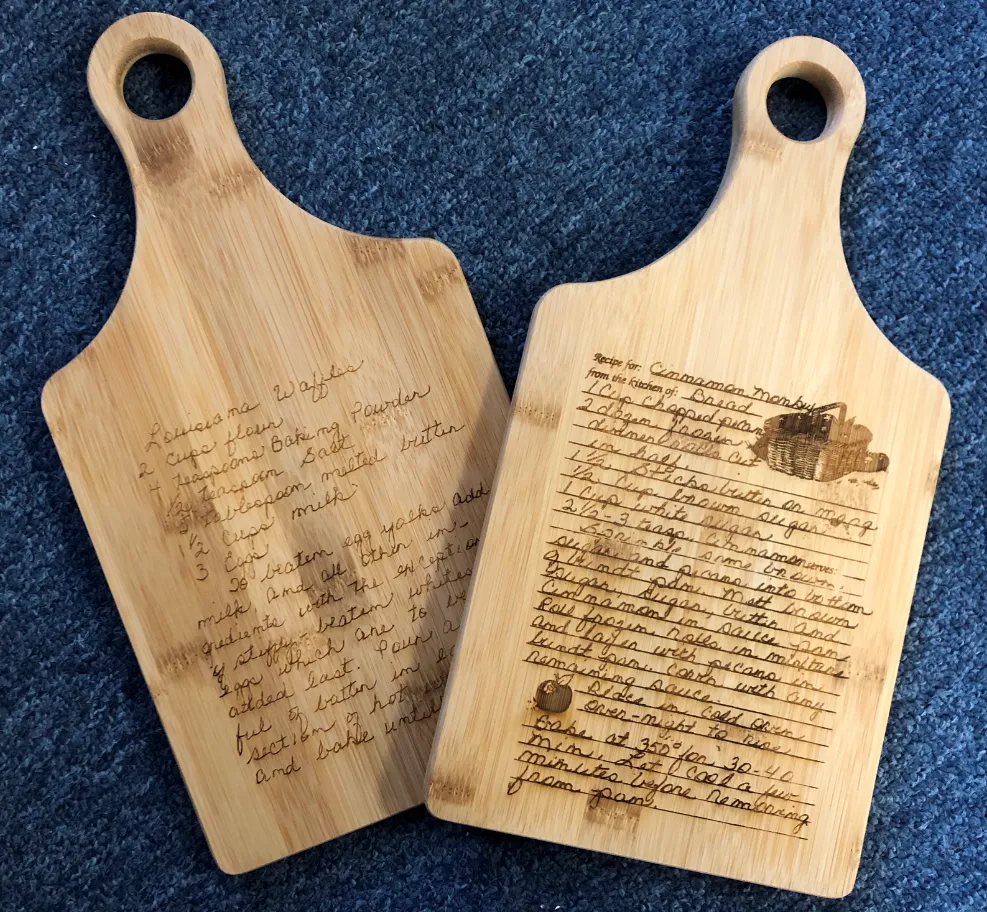 Louisiana Waffles
2 cups flour
4 teaspoons Baking Powder
1/2 teaspoon Salt
tablespoon melted butter
1 1/2 cups milk
3 eggs
To beaten egg yolks add
milk and all other in-
gredients with the exception
of stiffly beaten whites
eggs which are to be
added last. Pour a
ful of batter in
section of hot
and bake until
Recipe for: Cinnamon Monkey
from the kitchen of: Bread
1 Cup Chopped pecans
2 dozen frozen
dinner rolls cut
in half
1 1/2 Sticks butter or marg
1/2 Cup brown sugar
1 Cup white sugar
2 1/2 - 3 teasp cinnamon
serves:
Sprinkle some brown
sugar and pecans into bottom
of bundt pan. Melt brown
sugar, sugar, butter and
Cinnamon in sauce pan.
Roll frozen rolls in mixture
and layer with pecans in
bundt pan. Cover with any
remaining sauce.
Place in cold oven
over-night to rise.
Bake at 350° for 30-40
min. Let cool a few
minutes before removing
from pan.